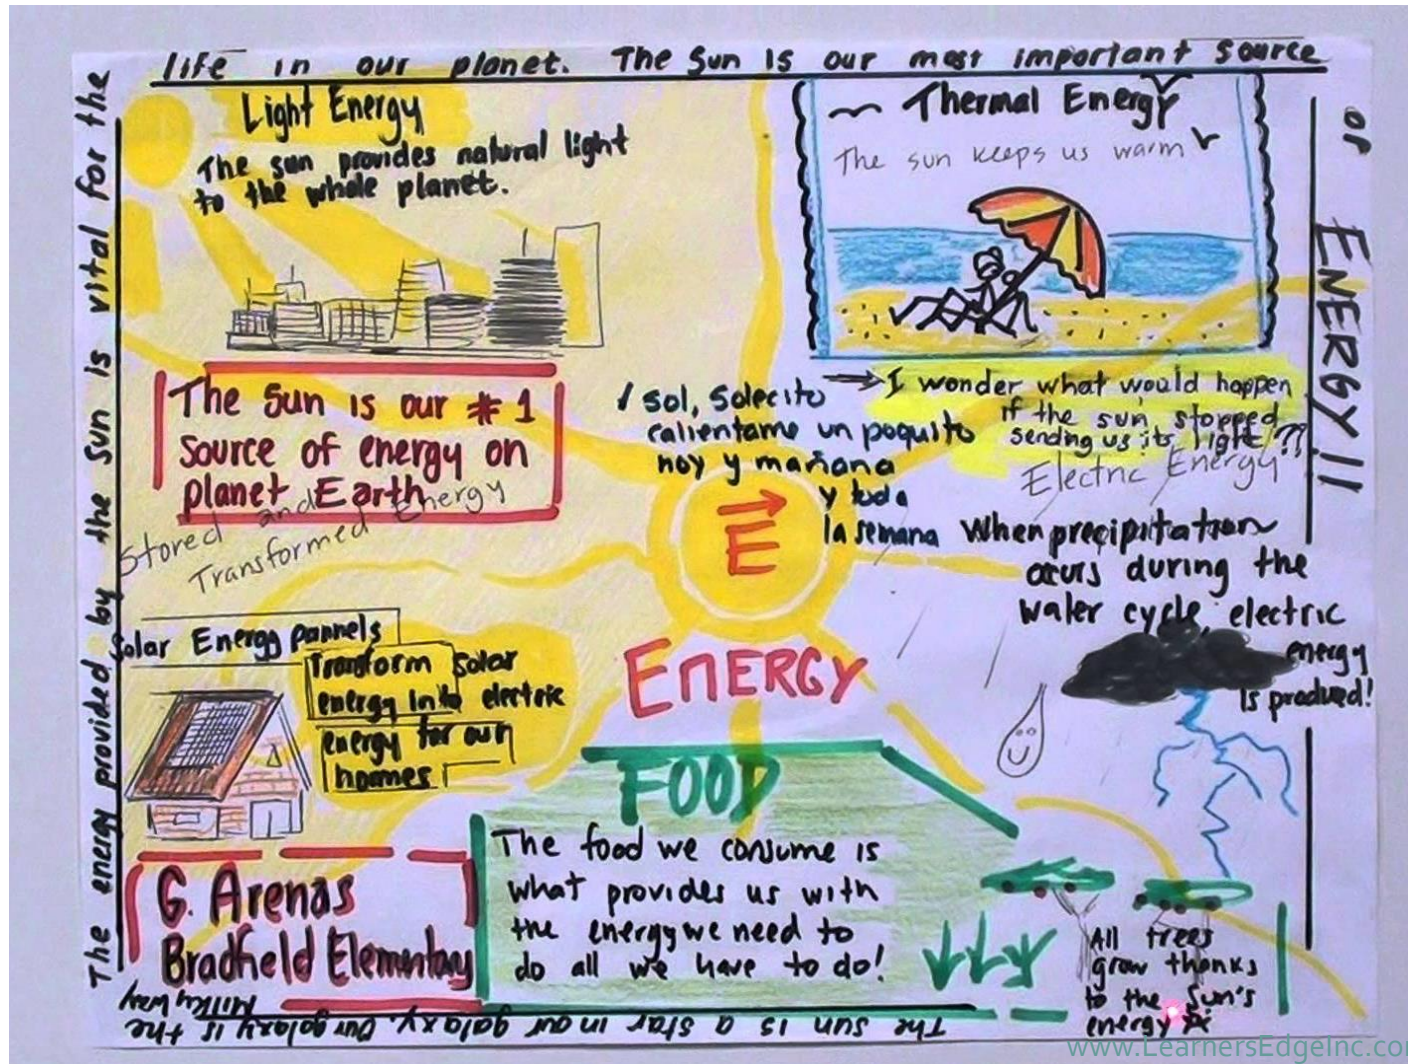 The energy provided by the sun is vital for the
life in our planet. The Sun is our most important source
of ENERGY!!
Light Energy
The sun provides natural light
to the whole planet.
Thermal Energy
The sun keeps us warm
The Sun is our #1
source of energy on
planet Earth
sol, solecito
calientame un poquito
hoy y mañana
y toda
la semana
I wonder what would happen
if the sun stopped
sending us its light??
Electric Energy
When precipitation
ocurs during the
water cycle, electric
energy
is produced!
E
ENERGY
Stored and
Transformed Energy
Solar Energy pannels
Transform solar
energy into electric
energy for our
homes
FOOD
The food we consume is
what provides us with
the energy we need to
do all we have to do!
All trees
grow thanks
to the sun's
energy
G. Arenas
Bradfield Elementary
The sun is a star in our galaxy. Our galaxy is the
Milky Way
www.LearnersEdgeInc.co